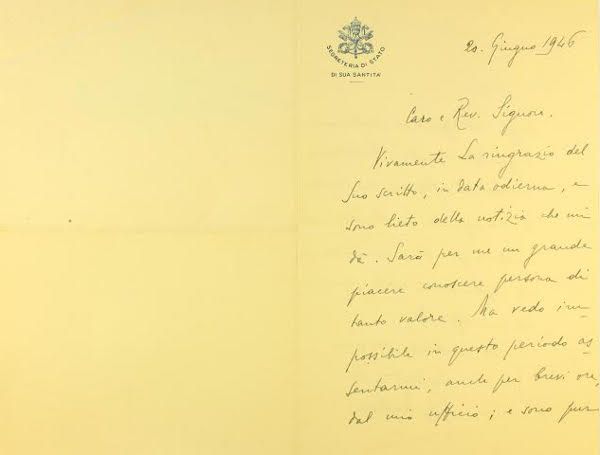 SEGRETERIA DI STATO
DI SUA SANTITA'
20. Giugno 1946
Caro e Rev. Signore.
Vivamente La ringrazio del
Suo scritto, in data odierna, e
sono lieto della notizia che mi
dà. Sarà per me un grande
piacere conoscere persona di
tanto valore. Ma vedo im-
possibile in questo periodo as
sentarmi, anche per brevi ore,
dal mio ufficio; e sono pur